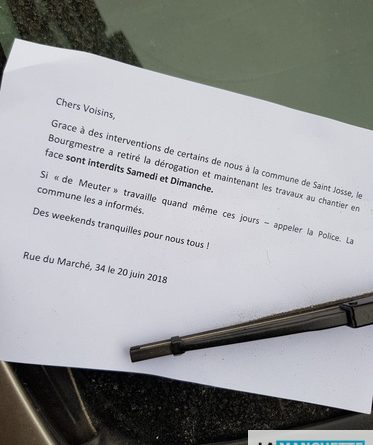 Chers Voisins,
Grace à des interventions de certains de nous à la commune de Saint Josse, le
Bourgmestre a retiré la dérogation et maintenant les travaux au chantier en
face sont interdits Samedi et Dimanche.
Si « de Meuter » travaille quand même ces jours – appeler la Police. La
commune les a informés.
Des weekends tranquilles pour nous tous !
Rue du Marché, 34 le 20 juin 2018